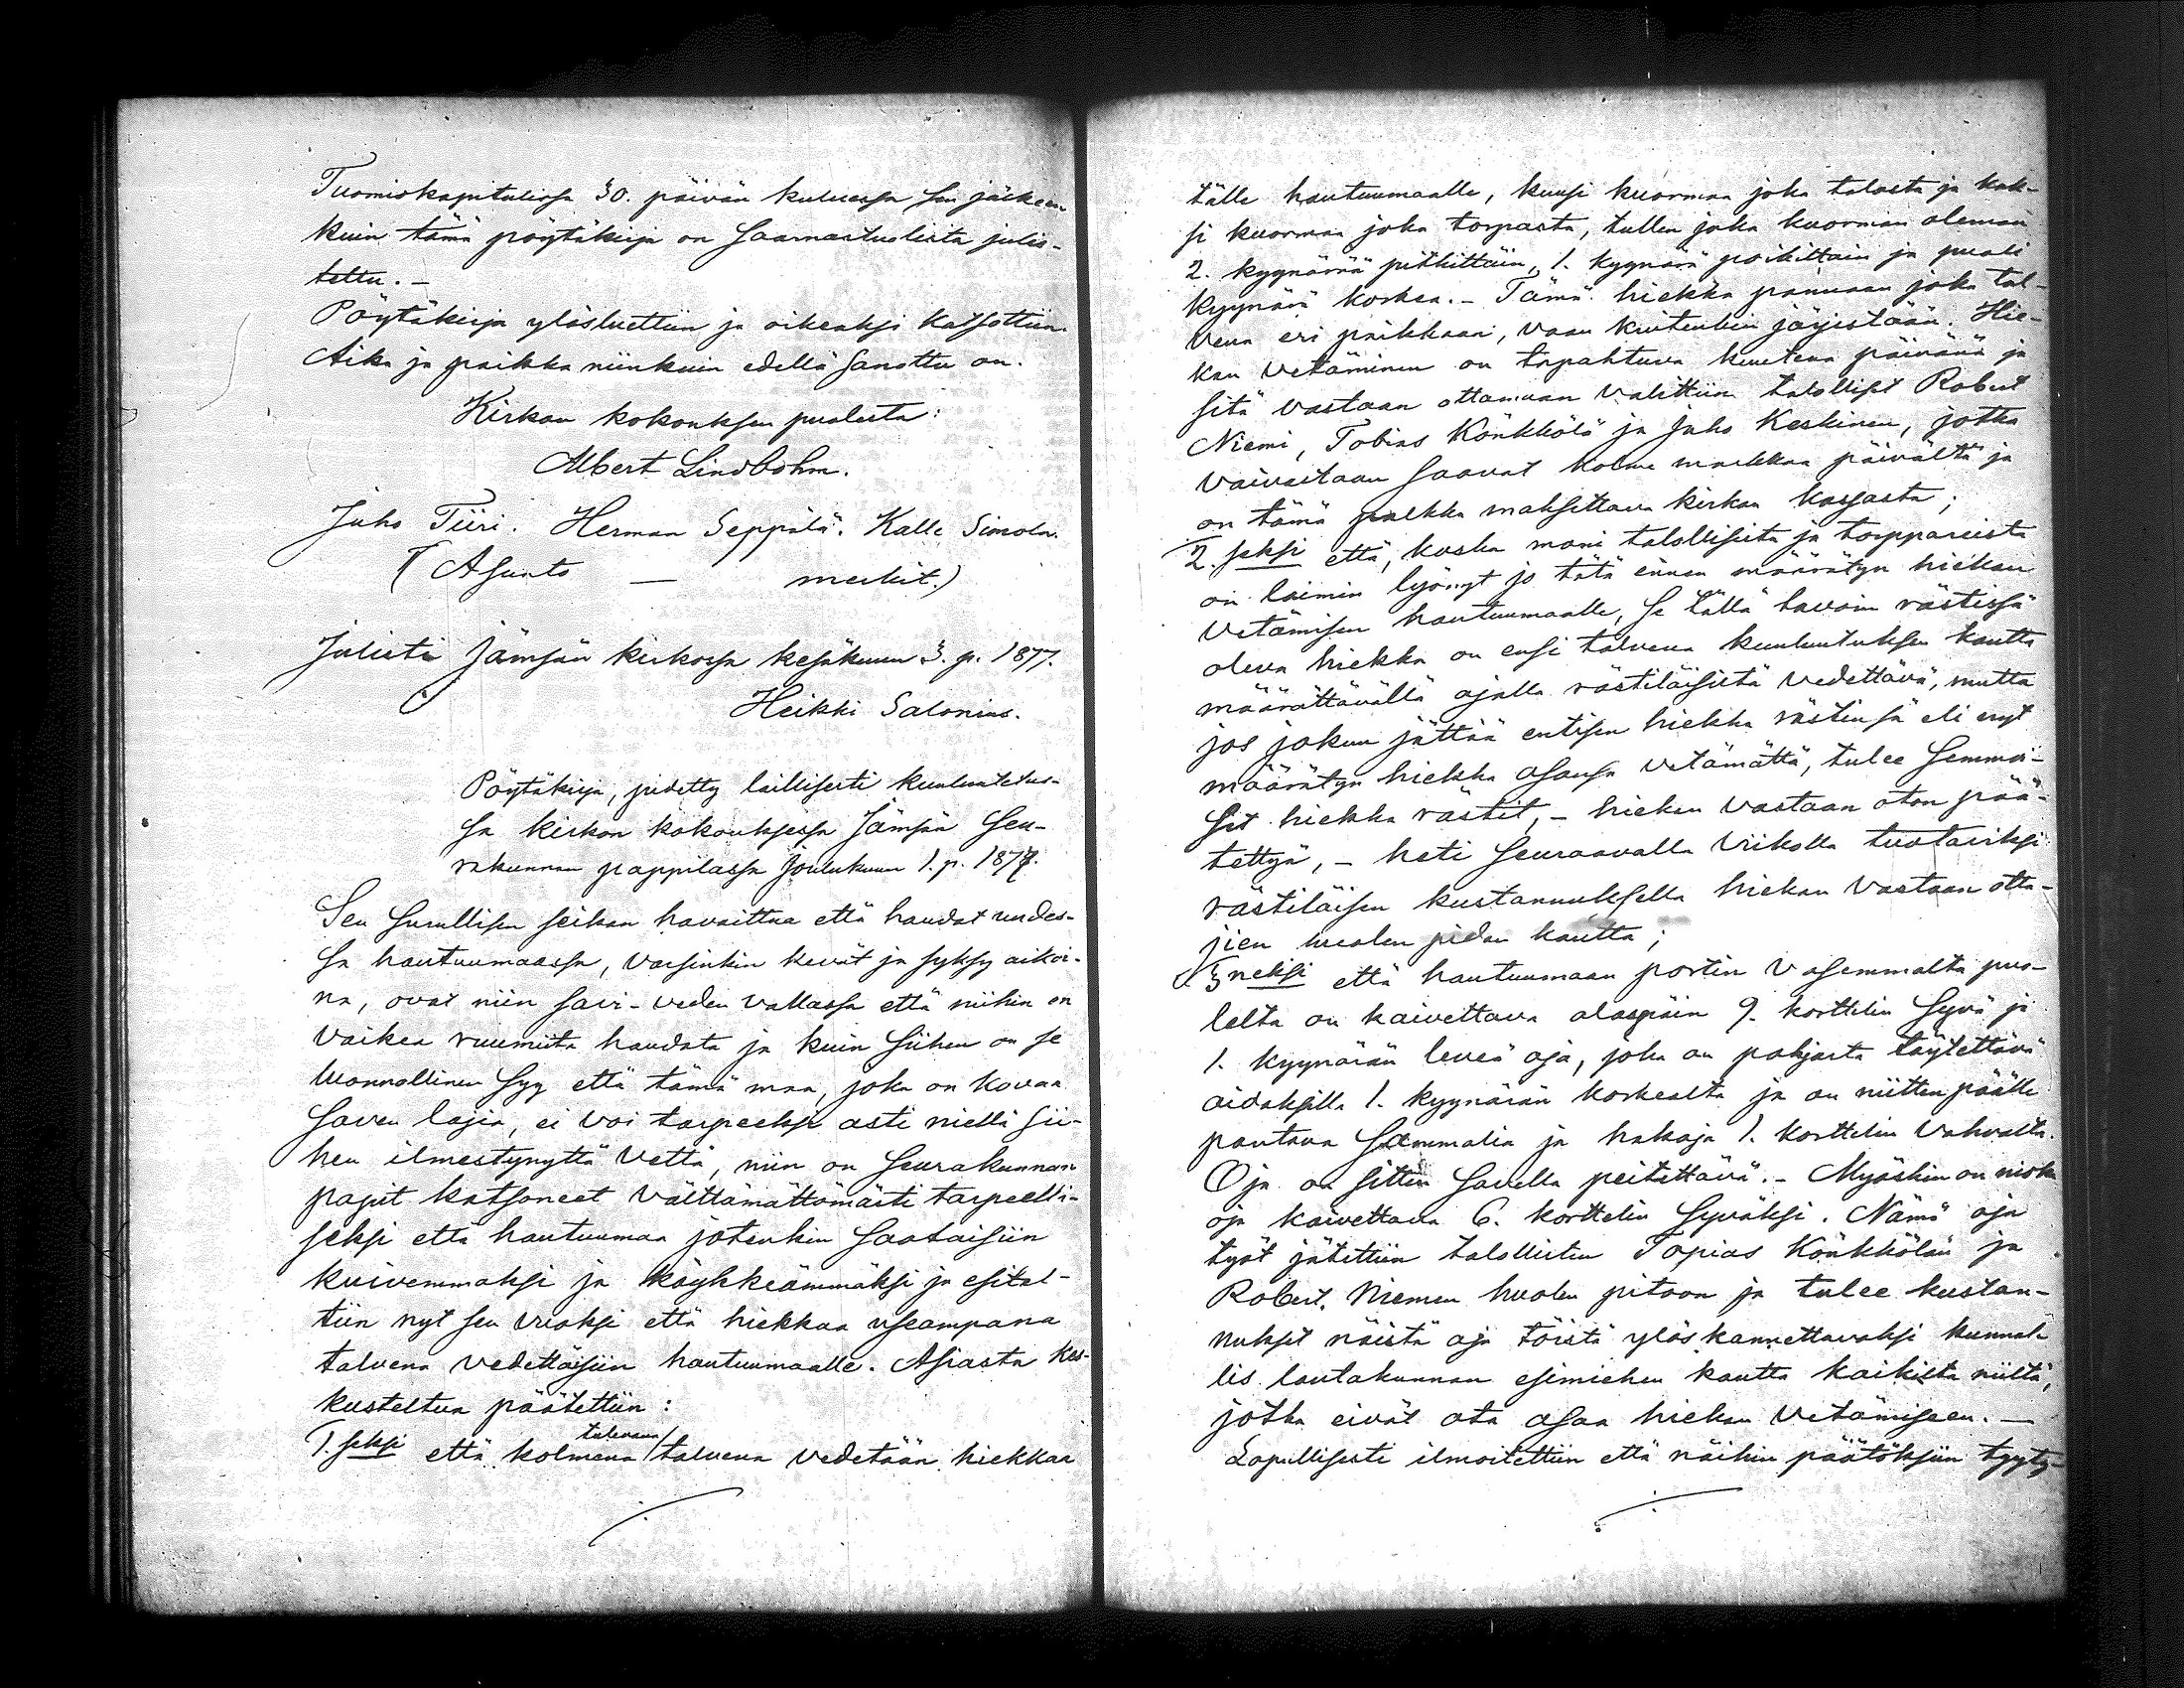 Tuomiokapitulissa 30. päivän kuluessa sen jälkeen
kuin tämä pöytäkirja on saarnastuolista julis-
tettu. –
Pöytäkirja ylösluettiin ja oikeaksi katsottiin.
Aika ja paikka niinkuin edellä sanottu on.
Kirkon kokouksen puolesta:
Albert Lindbohm.
Juho Tiiri. Herman Seppälä. Kalle Simola.
(Asunto – merkit.)
Julisti Jämsän kirkossa kesäkuun 3. p. 1877.
Heikki Salonius.
Pöytäkirja, pidetty laillisesti kuulutetus-
sa kirkon kokouksessa Jämsän Seu-
rakunnan pappilassa Joulukuun 1. p. 1877.
Sen surullisen seikan havaittua että haudat uudes-
sa hautuumaassa, varsinkin kevät ja syksy aikoi-
na, ovat niin savi-veden vallassa että niihin on
vaikea ruumiita haudata ja kuin siihen on se
luonnollinen syy että tämä maa, joka on kovaa
saven lajia, ei voi tarpeeksi asti niellä sii-
hen ilmestynyttä vettä, niin on seurakunnan
papit katsoneet välttämättömästi tarpeelli-
seksi että hautuumaa jotenkin saataisiin
kuivemmaksi ja köyhkeämmäksi ja esitel-
tiin nyt sen vuoksi että hiekkaa useampana
talvena vedettäisiin hautuumaalle. Asiasta kes-
kusteltua päätettiin:
1.seksi että kolmena tulevana talvena vedetään hiekkaa
tälle hautuumaalle, kuusi kuormaa joka talosta ja kak-
si kuormaa joka torpasta, tullen joka kuorman oleman
2. kyynärää pitkittäin, 1. kyynärä poikittain ja puoli
kyynärä korkea. – Tämä hiekka pannaan joka tal-
vena eri paikkaan, vaan kuitenkin järjestään. Hie-
kan vetäminen on tapahtuva kuutena päivänä ja
sitä vastaan ottamaan valittiin talolliset Robert
Niemi, Tobias Könkkölä ja Juho Keskinen, jotka
vaivastaan saavat kolme markkaa päivältä ja
on tämä palkka maksettava kirkon kassasta;
2.seksi että, koska moni talollisista ja torppareista
on laimin lyönyt jo tätä ennen määrätyn hiekan
vetämisen hautuumaalle, se tällä tavoin rästissä
oleva hiekka on ensi talvena kuulutuksen kautta
määrättävällä ajalla rästiläisistä vedettävä, mutta
jos jokuu jättää entisen hiekka rästinsä eli nyt
määrätyn hiekka osansa vetämättä, tulee semmoi-
set hiekka rästit, – hiekan vastaan oton pää-
tettyä, – heti seuraavalla viikolla tuotaviksi
rästiläisen kustannuksella hiekan vastaan otta-
jien huolen pidon kautta;
3neksi että hautuumaan portin vasemmalta puo-
lelta on kaivettava alaspäin 9. korttelin syvä ja
1. kyynärän leveä oja, joka on pohjasta täytettävä
aidaksilla 1. kyynärän korkealta ja on niitten päälle
pantava sammalia ja hakoja 1. korttelin vahvalta.
Oja on sitten savella peitettävä. – Myöskin on niska
oja kaivettava 6. korttelin syväksi. Nämä oja
työt jätettiin talollisten Topias Könkkölän ja
Robert Niemen huolen pitoon ja tulee kustan-
nukset näistä oja töistä ylös kannettavaksi kunnal-
lis lautakunnan esimiehen kautta kaikilta niiltä,
jotka eivät ota osaa hiekan vetämiseen. –
Lopullisesti ilmoitettiin että näihin päätöksiin tyyty-